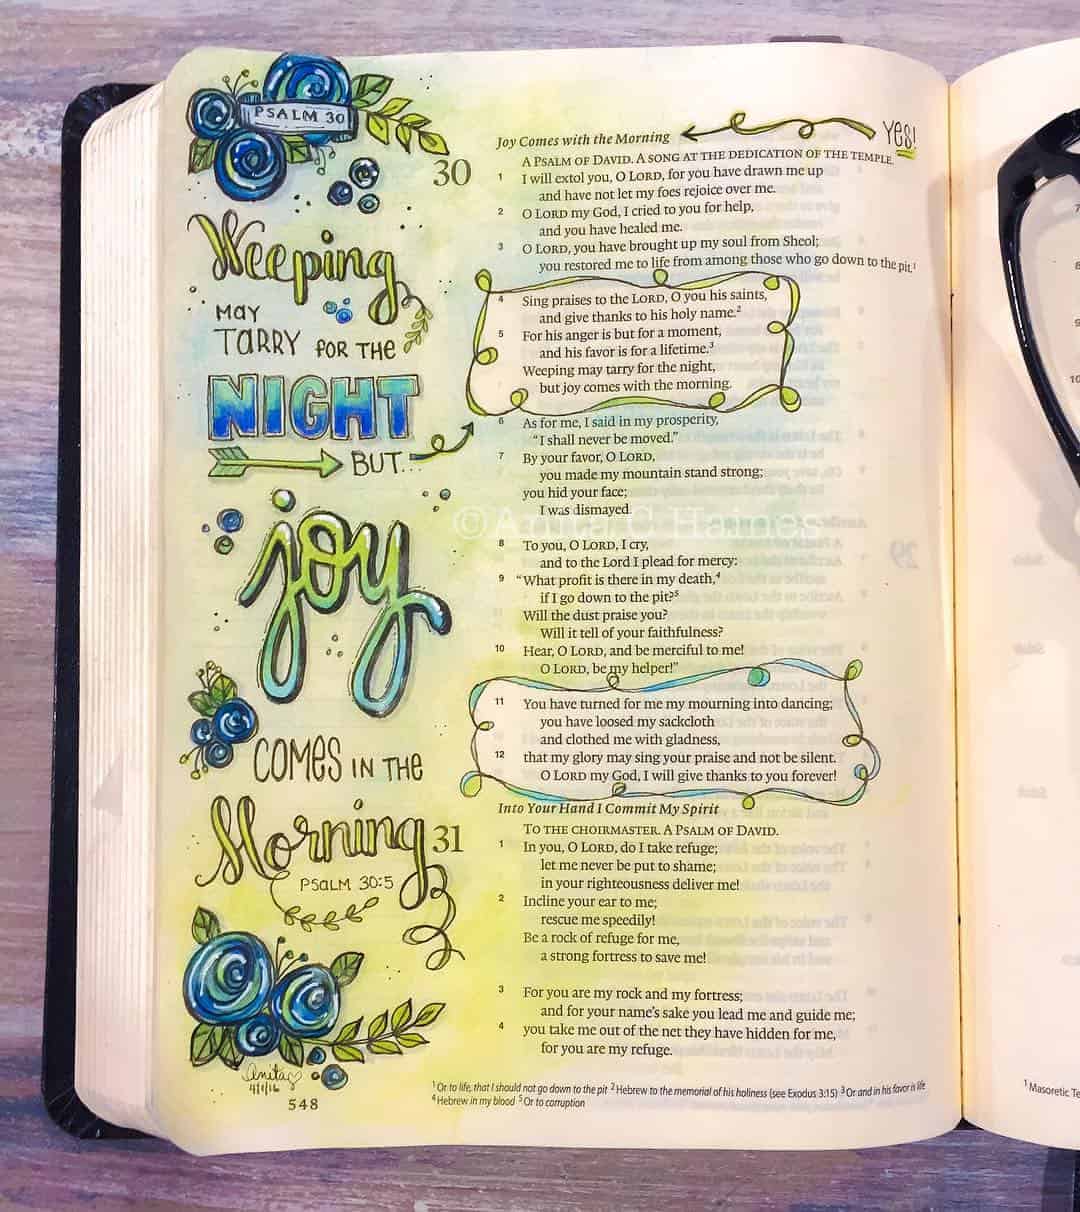 PSALM 30
Weeping
MAY
TARRY FOR THE
NIGHT
BUT...
joy
COMES IN THE
Morning
PSALM 30:5
Anita
4/1/16
548
Joy Comes with the Morning
YES!
30
A PSALM OF DAVID. A SONG AT THE DEDICATION OF THE TEMPLE.
1 I will extol you, O LORD, for you have drawn me up
and have not let my foes rejoice over me.
2 O LORD my God, I cried to you for help,
and you have healed me.
3 O LORD, you have brought up my soul from Sheol;
you restored me to life from among those who go down to the pit.1
4 Sing praises to the LORD, O you his saints,
and give thanks to his holy name.2
5 For his anger is but for a moment,
and his favor is for a lifetime.3
Weeping may tarry for the night,
but joy comes with the morning.
6 As for me, I said in my prosperity,
“I shall never be moved.”
7 By your favor, O LORD,
you made my mountain stand strong;
you hid your face;
I was dismayed.
©Anita C Haines
8 To you, O LORD, I cry,
and to the Lord I plead for mercy:
9 “What profit is there in my death,4
if I go down to the pit?5
Will the dust praise you?
Will it tell of your faithfulness?
10 Hear, O LORD, and be merciful to me!
O LORD, be my helper!”
11 You have turned for me my mourning into dancing;
you have loosed my sackcloth
and clothed me with gladness,
12 that my glory may sing your praise and not be silent.
O LORD my God, I will give thanks to you forever!
Into Your Hand I Commit My Spirit
31
TO THE CHOIRMASTER. A PSALM OF DAVID.
1 In you, O LORD, do I take refuge;
let me never be put to shame;
in your righteousness deliver me!
2 Incline your ear to me;
rescue me speedily!
Be a rock of refuge for me,
a strong fortress to save me!
3 For you are my rock and my fortress;
and for your name’s sake you lead me and guide me;
4 you take me out of the net they have hidden for me,
for you are my refuge.
1 Or to life, that I should not go down to the pit 2 Hebrew to the memorial of his holiness (see Exodus 3:15) 3 Or and in his favor is life
4 Hebrew in my blood 5 Or to corruption
7
8
9
10
1 Masoretic Te